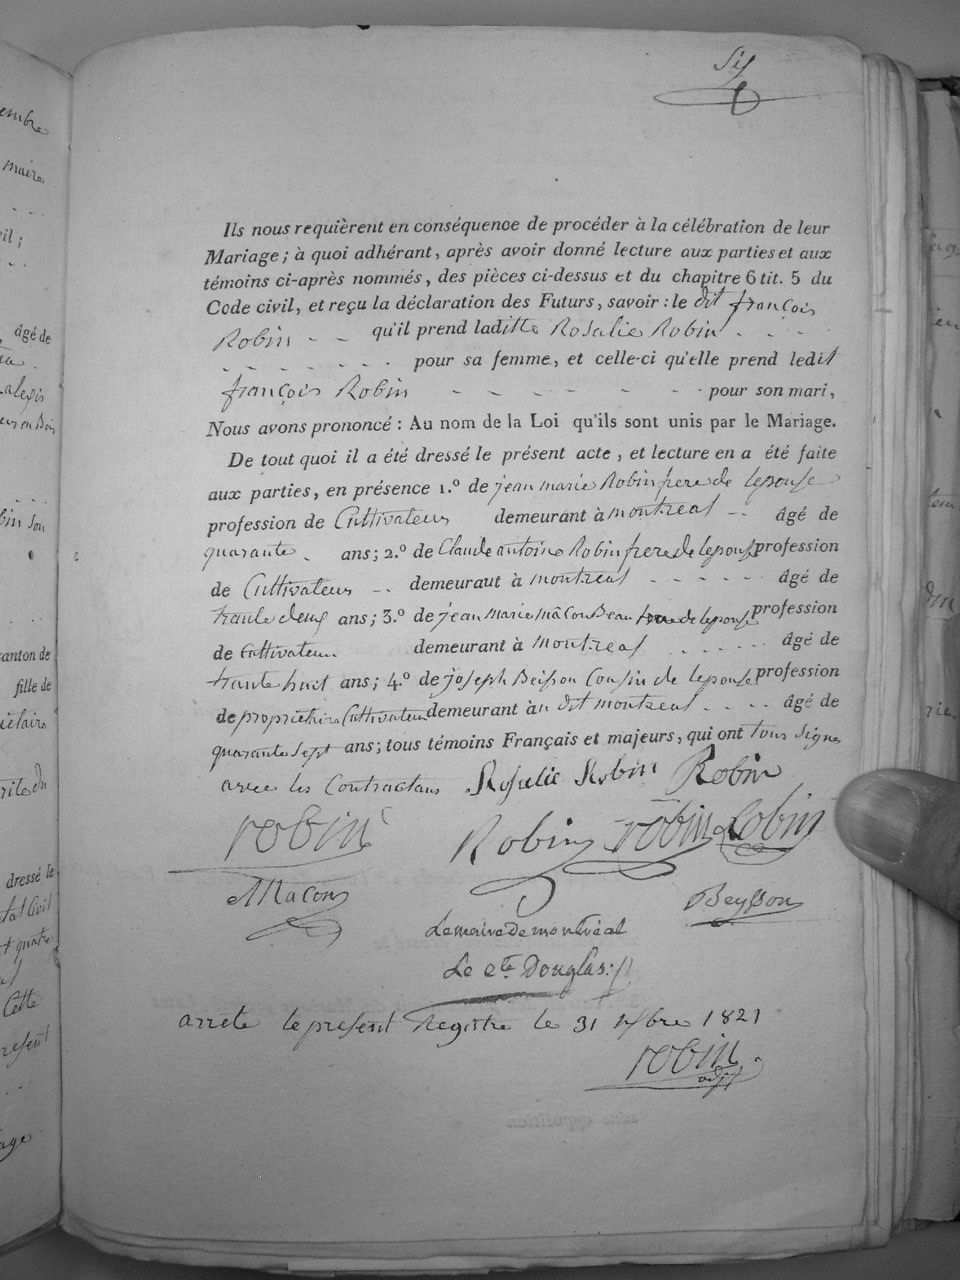 Six
Ils nous requièrent en conséquence de procéder à la célébration de leur
Mariage; à quoi adhérant, après avoir donné lecture aux parties et aux
témoins ci-après nommés, des pièces ci-dessus et du chapitre 6 tit. 5 du
Code civil, et reçu la déclaration des Futurs, savoir : le dit françois
Robin - - qu'il prend laditte Rosalie Robin - - -
- - - - - - - pour sa femme, et celle-ci qu'elle prend ledit
françois Robin - - - - - - - pour son mari,
Nous avons prononcé : Au nom de la Loi qu'ils sont unis par le Mariage.
De tout quoi il a été dressé le présent acte, et lecture en a été faite
aux parties, en présence 1.º de jean marie Robin frere de lepouse
profession de Cultivateur demeurant à montreal - - âgé de
quarante - ans; 2.º de Claude antoine Robin frere de lepouse profession
de Cultivateur - - demeuraut à montreal - - - - - - âgé de
trante deux ans; 3.º de jean Marie mâcon Beau frere de lepouse profession
de Cultivateur demeurant à montreal - - - - - - âgé de
trante huit ans; 4.º de joseph Beisson Cousin de lepouse profession
de propriétaire Cultivateur demeurant à u dit montreal - - - - âgé de
quarante sept ans; tous témoins Français et majeurs, qui ont tous signe
avec les Contractans Rosalie Robin Robin
robin Robin robin Robin
Macon Beysson
Le maire de montréal
Le cte Douglas
arrete le present Registre le 31 xbre 1821
robin
adjt
embre
maire
vil;
âgé de
alexis
canton de
fille de
dressé le
quatre
Cette
present